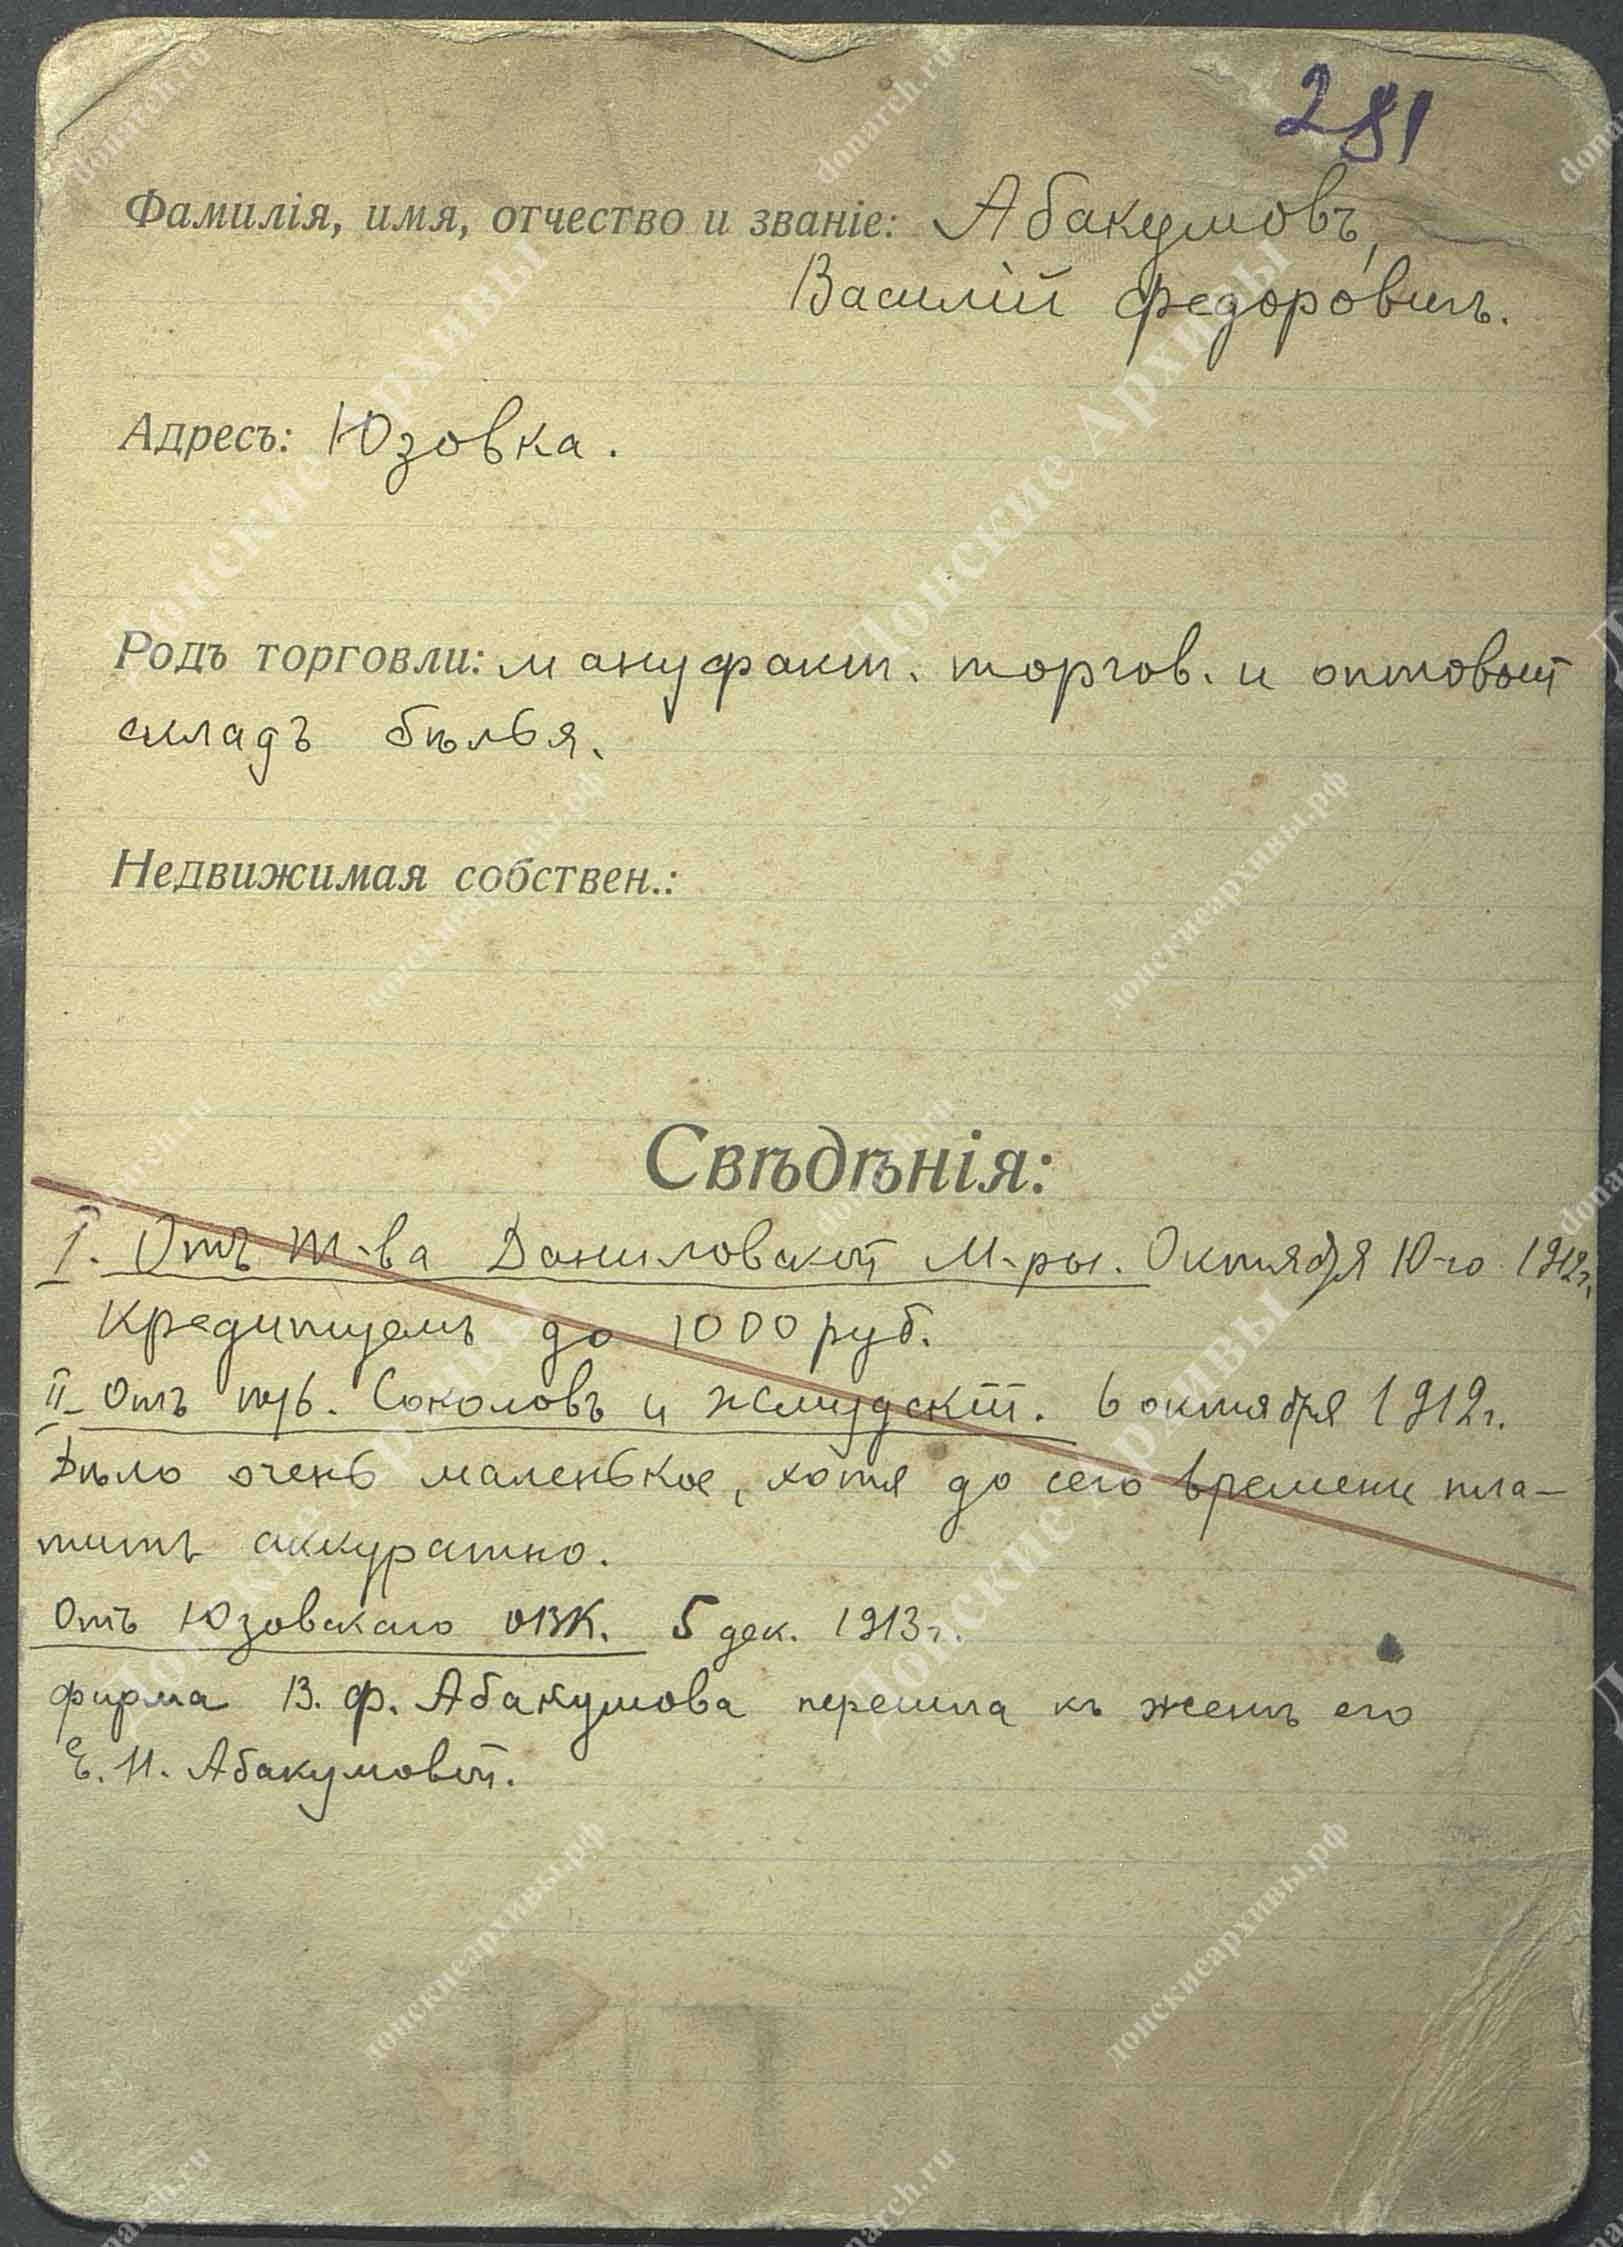 281
Фамилія, имя, отчество и званіе: Абакумовъ,
Василій Федоровичъ.
Адресъ: Юзовка.
Родъ торговли: мануфакт. торгов. и оптовый
складъ бѣлья.
Недвижимая собствен.:
Свѣдѣнія:
I. Отъ Т-ва Даниловской М-ры. Октября 10-го 1912г.
Кредитуемъ до 1000 руб.
II. Отъ Соколовъ и Жмудскій. 6 октября 1912г.
Дѣло очень маленькое, хотя до сего времени пла-
титъ аккуратно.
Отъ Юзовскаго ОВК. 5 дек. 1913г.
фирма В. Ф. Абакумова перешла къ женѣ его
Е. И. Абакумовой.